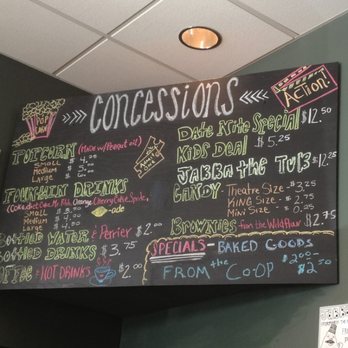 CONCESSIONS
POP CORN
ACTION!
POPCORN (Made w/Peanut oil)
SMALL $4.00
Medium 5
LARGE 6
FOUNTAIN DRINKS
SMALL $3
MEDIUM $4.00
LARGE $4.50
Bottled WATER & Perrier $2.00
BOTTLED DRINKS $3.75
COFFEE & HOT DRINKS $2.00
Date Nite Special $12.50
KIDS DEAL $5.25
JABBA the TUB $12.25
CANDY Theatre Size - $3.75
KING SIZE - $2.75
Mini SIZE - $2.05
BROWNIES from the Wildflour $2.75
SPECIALS - BAKED GOODS
FROM the CO-OP $2.00-
$2.50